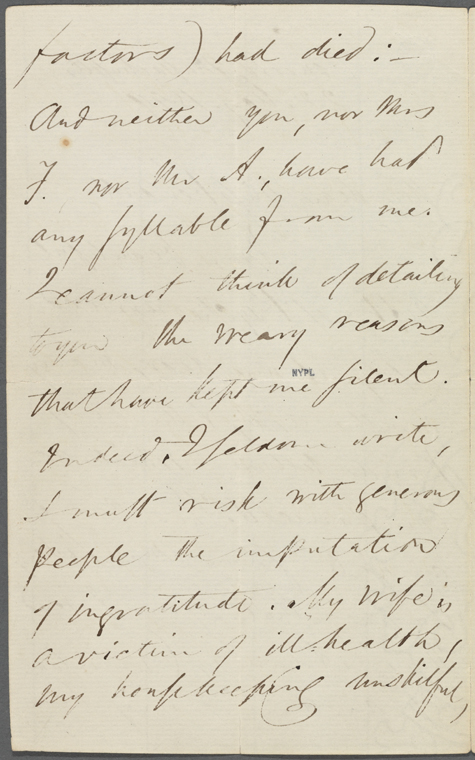 factors) had died:—
And neither you, nor Mrs
F. nor Mr A., have had
any syllable from me.
I cannot think of detailing
to you the weary reasons
that have kept me silent.
NYPL
Indeed, I seldom write,
I must risk with generous
people the imputation
of ingratitude. My wife is
a victim of ill-health,
my housekeeping unskilful,